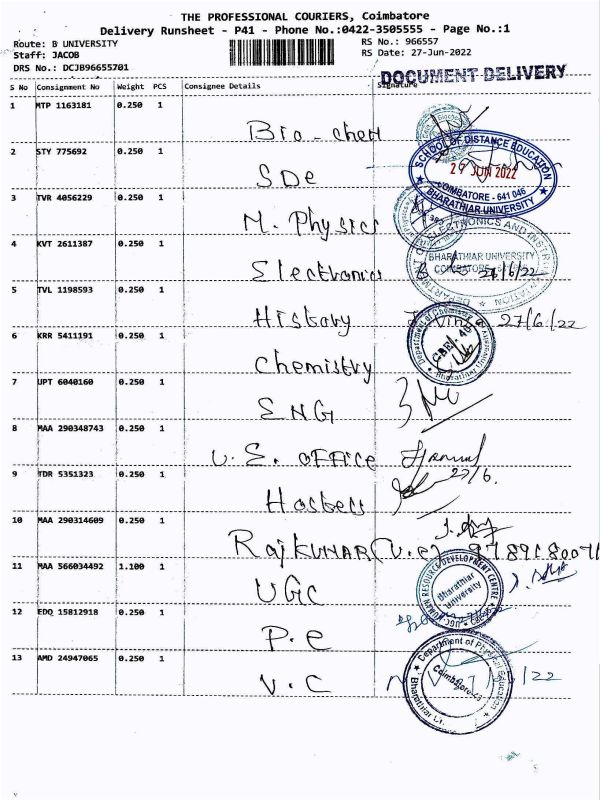 THE PROFESSIONAL COURIERS, Coimbatore
Delivery Runsheet - P41 - Phone No.:0422-3505555 - Page No.:1
Route: B UNIVERSITY RS No.: 966557
Staff: JACOB RS Date: 27-Jun-2022
DRS No.: DCJB96655701
DOCUMENT DELIVERY
S No Consignment No Weight PCS Consignee Details Signature
1 MTP 1163181 0.250 1
Bio-chem
2 STY 775692 0.250 1
SDe
SCHOOL OF DISTANCE EDUCATION
27 JUN 2022
COIMBATORE - 641 046
BHARATHIAR UNIVERSITY
3 TVR 4056229 0.250 1
M. Physics
4 KVT 2611387 0.250 1
Electronics
ELECTRONICS AND INSTRUMENTATION
BHARATHIAR UNIVERSITY
27/6/22
5 TVL 1198593 0.250 1
History
27/6/22
6 KRR 5411191 0.250 1
Chemistry
Department of Chemistry
Bharathiar
7 UPT 6040160 0.250 1
ENG
8 MAA 290348743 0.250 1
U.S. OFFICE
9 TDR 5351323 0.250 1
Hostell
27/6.
10 MAA 290314609 0.250 1
RajkUNAR(U.e)
11 MAA 566034492 1.100 1
UGC
UGC-HUMAN RESOURCE DEVELOPMENT CENTRE
Bharathiar
University
12 EDQ 15812918 0.250 1
P.e
Department of Physical Education
Coimbatore-46
13 AMD 24947065 0.250 1
V.C